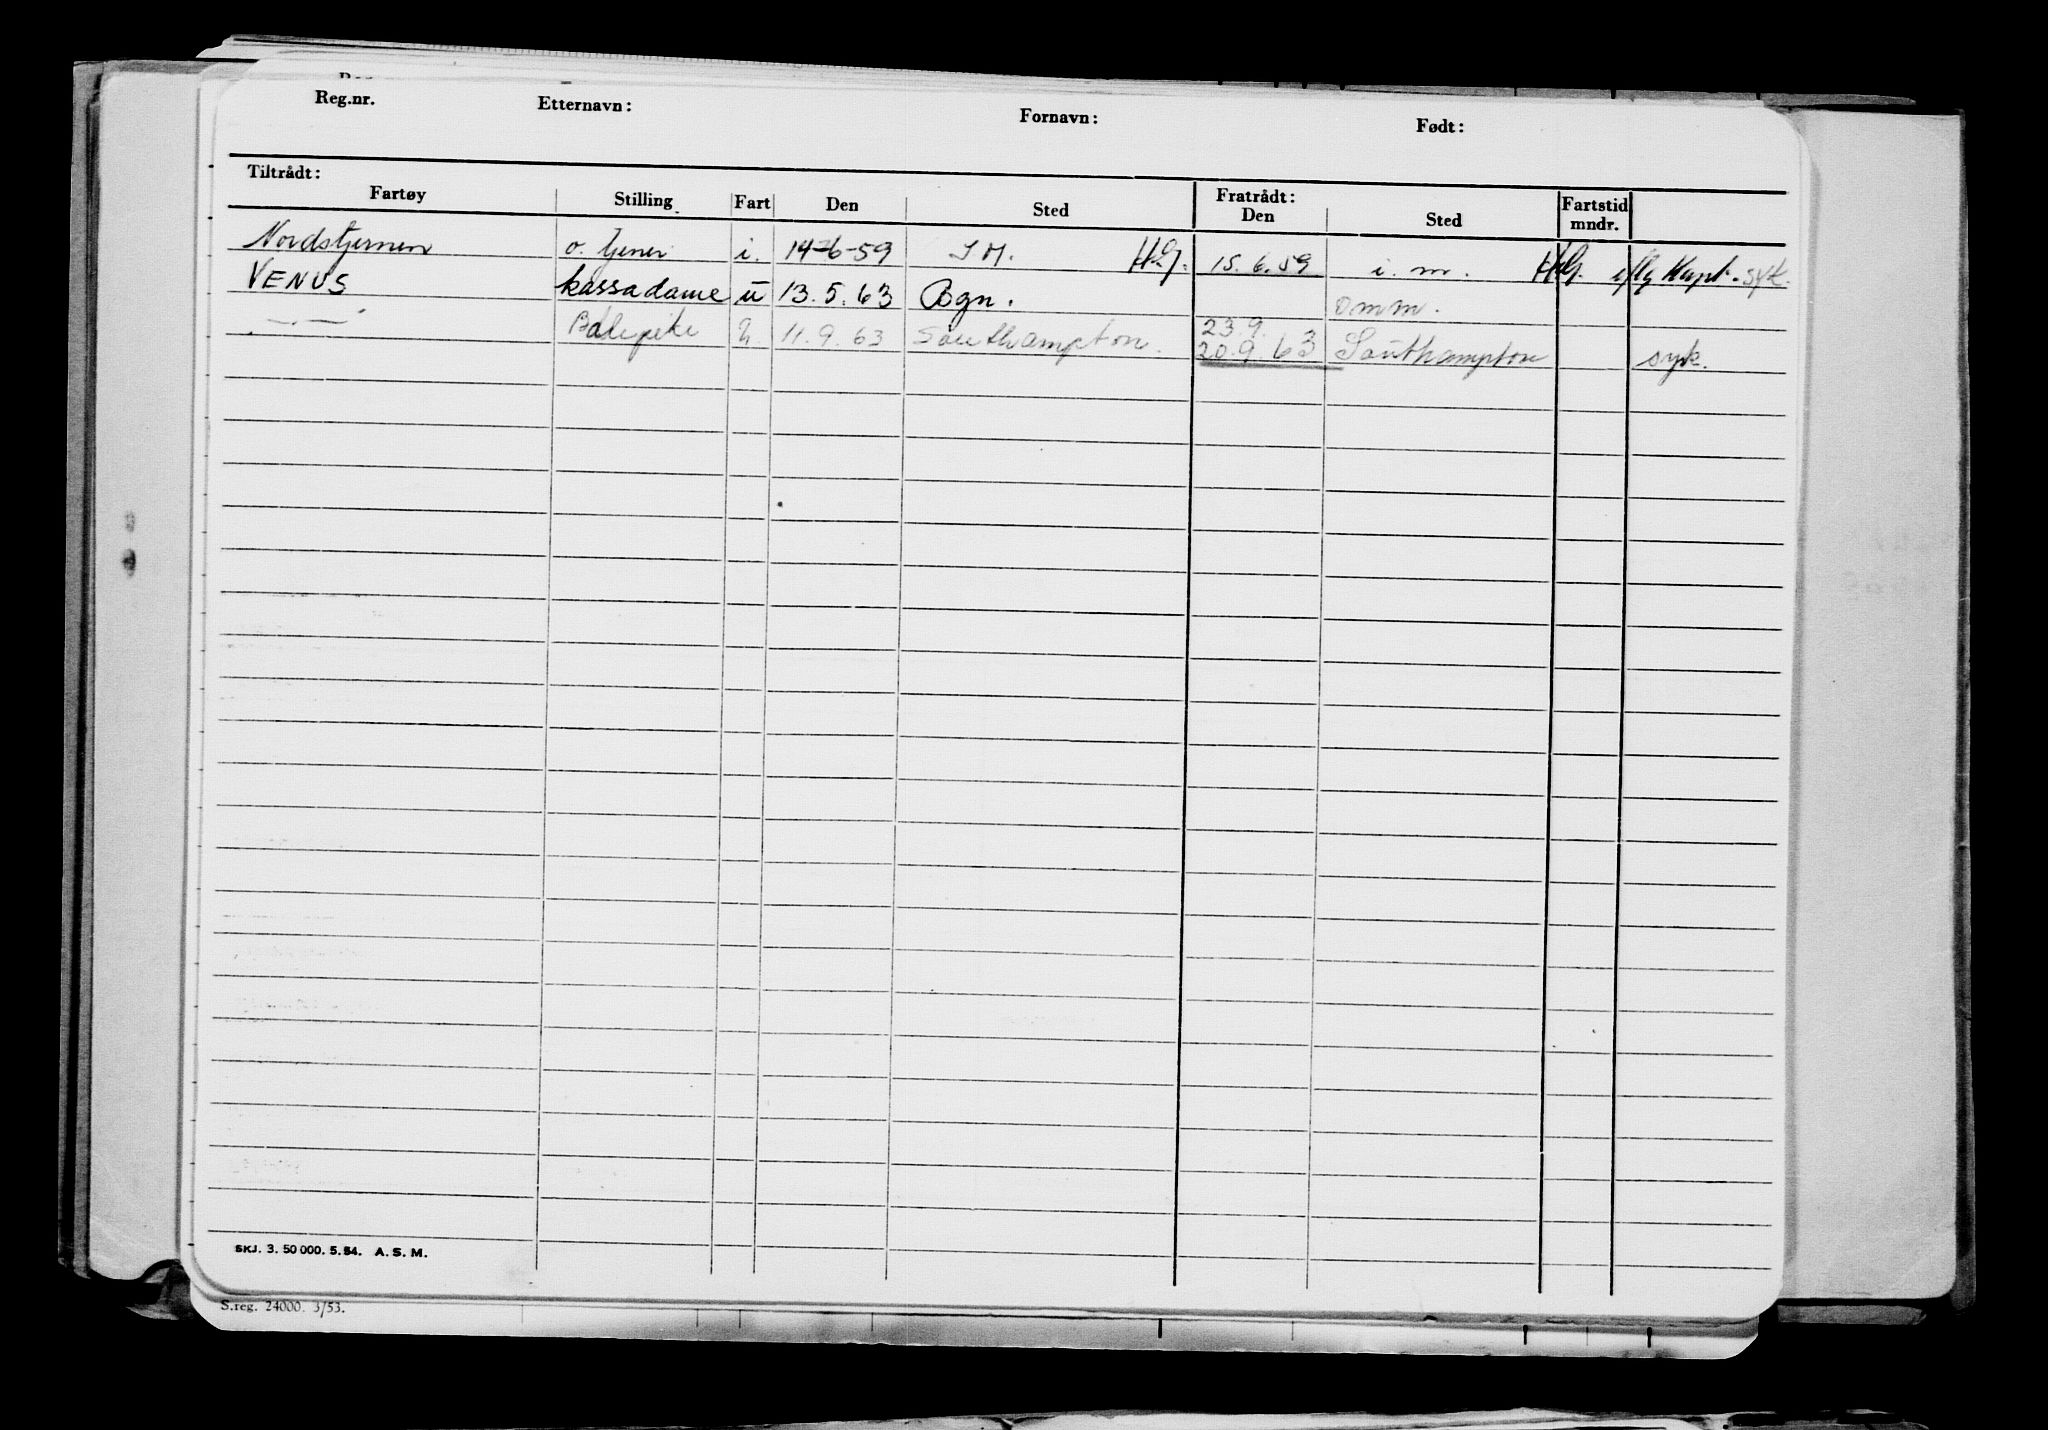 Reg.nr. Etternavn: Fornavn: Født:
Tiltrådt: Fratrådt:
Fartøy Stilling Fart Den Sted Den Sted Fartstid mndr.
Nordstjernen o. tjener i. 14-6-59 I M. H.G. 15.6.59 i. m. H.G. iflg Kapt. syk.
VENUS kassadame u 13.5.63 Bgn. omm.
— " — u. 11.9.63 Southampton. 23.9.
20.9.63 Southampton syk.
SKJ. 3. 50 000. 5. 54. A. S. M.
S.reg. 24000. 3/53.